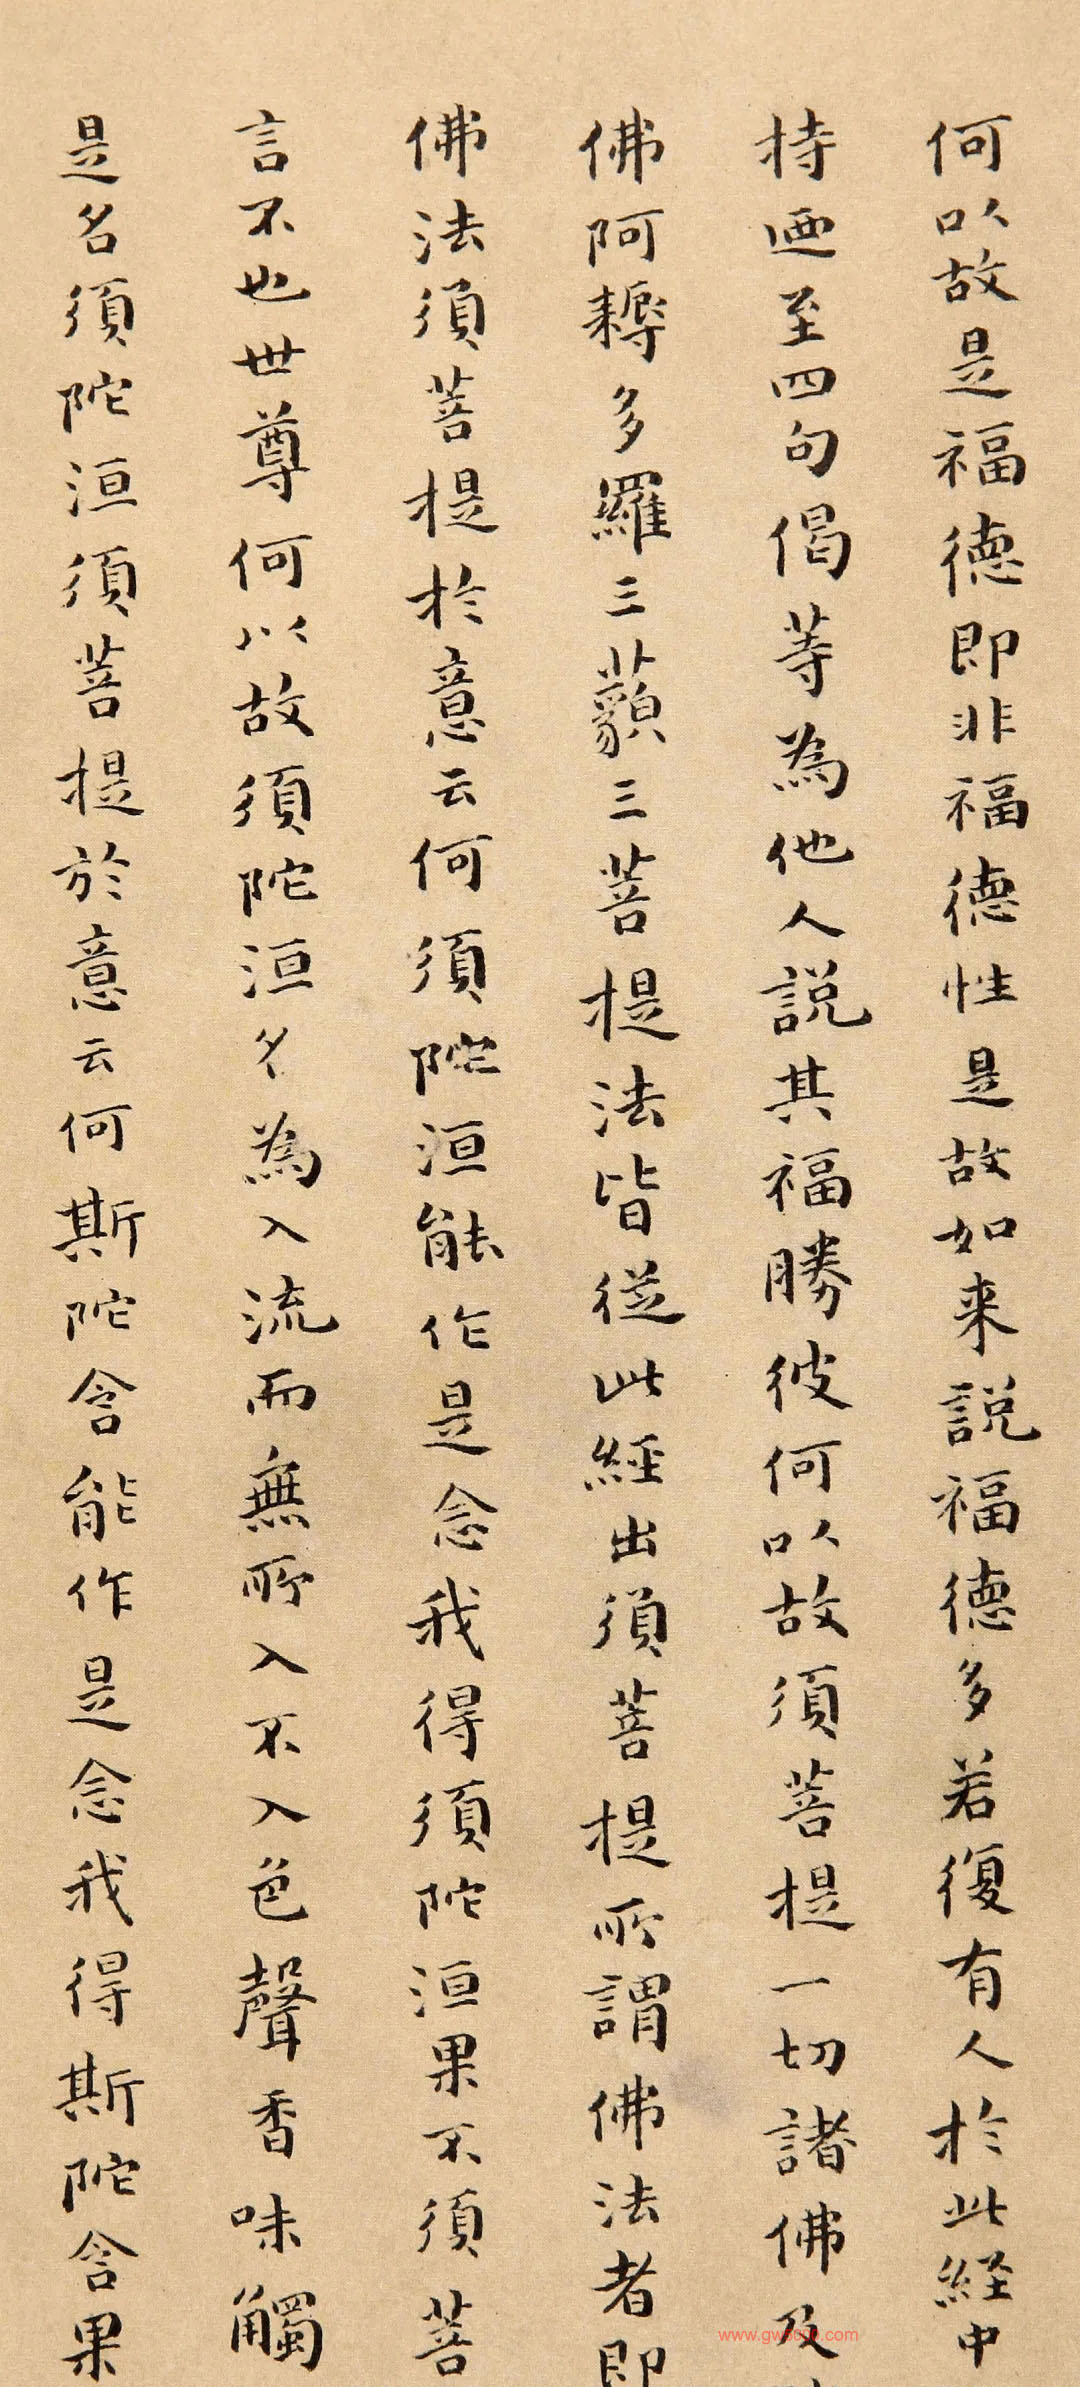 何以故是福德即非福德性是故如来説福德多若復有人於此経中
持迺至四句偈等為他人説其福勝彼何以故須菩提一切諸佛及
佛阿耨多羅三藐三菩提法皆從此經出須菩提所謂佛法者即
佛法須菩提於意云何須陀洹能作是念我得須陀洹果不須菩
言不也世尊何以故須陀洹名為入流而無所入不入色聲香味觸
是名須陀洹須菩提於意云何斯陀含能作是念我得斯陀含果
www.gw5000.com